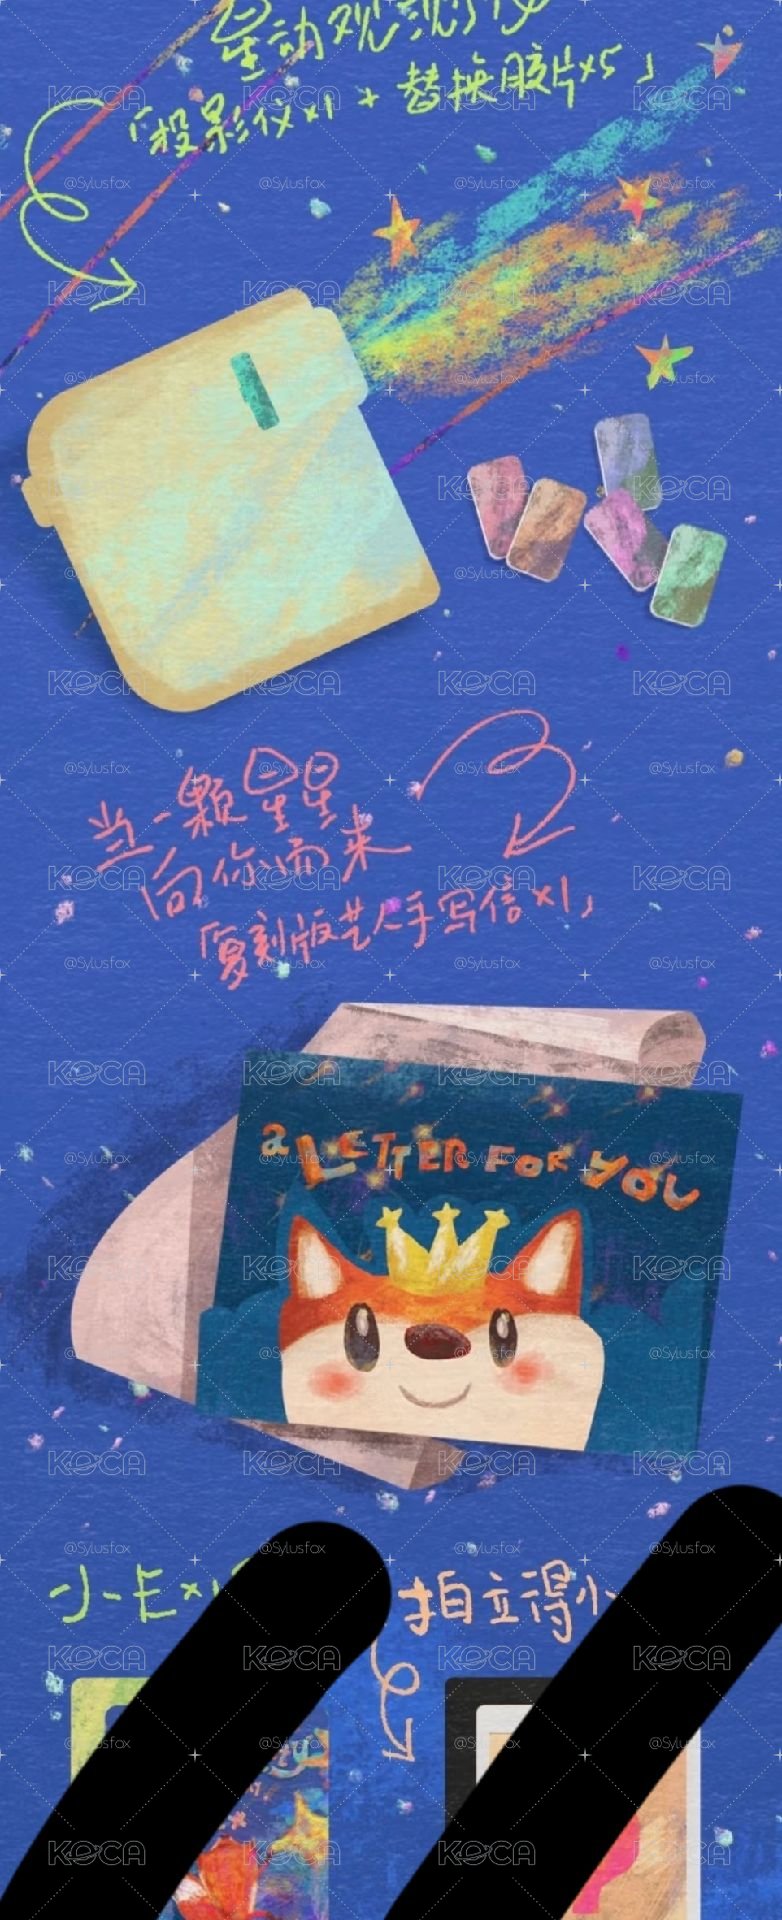 「投影仪×1 + 替换胶片×5」
当一颗星星
向你而来
「复刻版艺人手写信×1」
a LETTER FOR YOU
小卡×1
拍立得小
KOCA
@Sylusfox